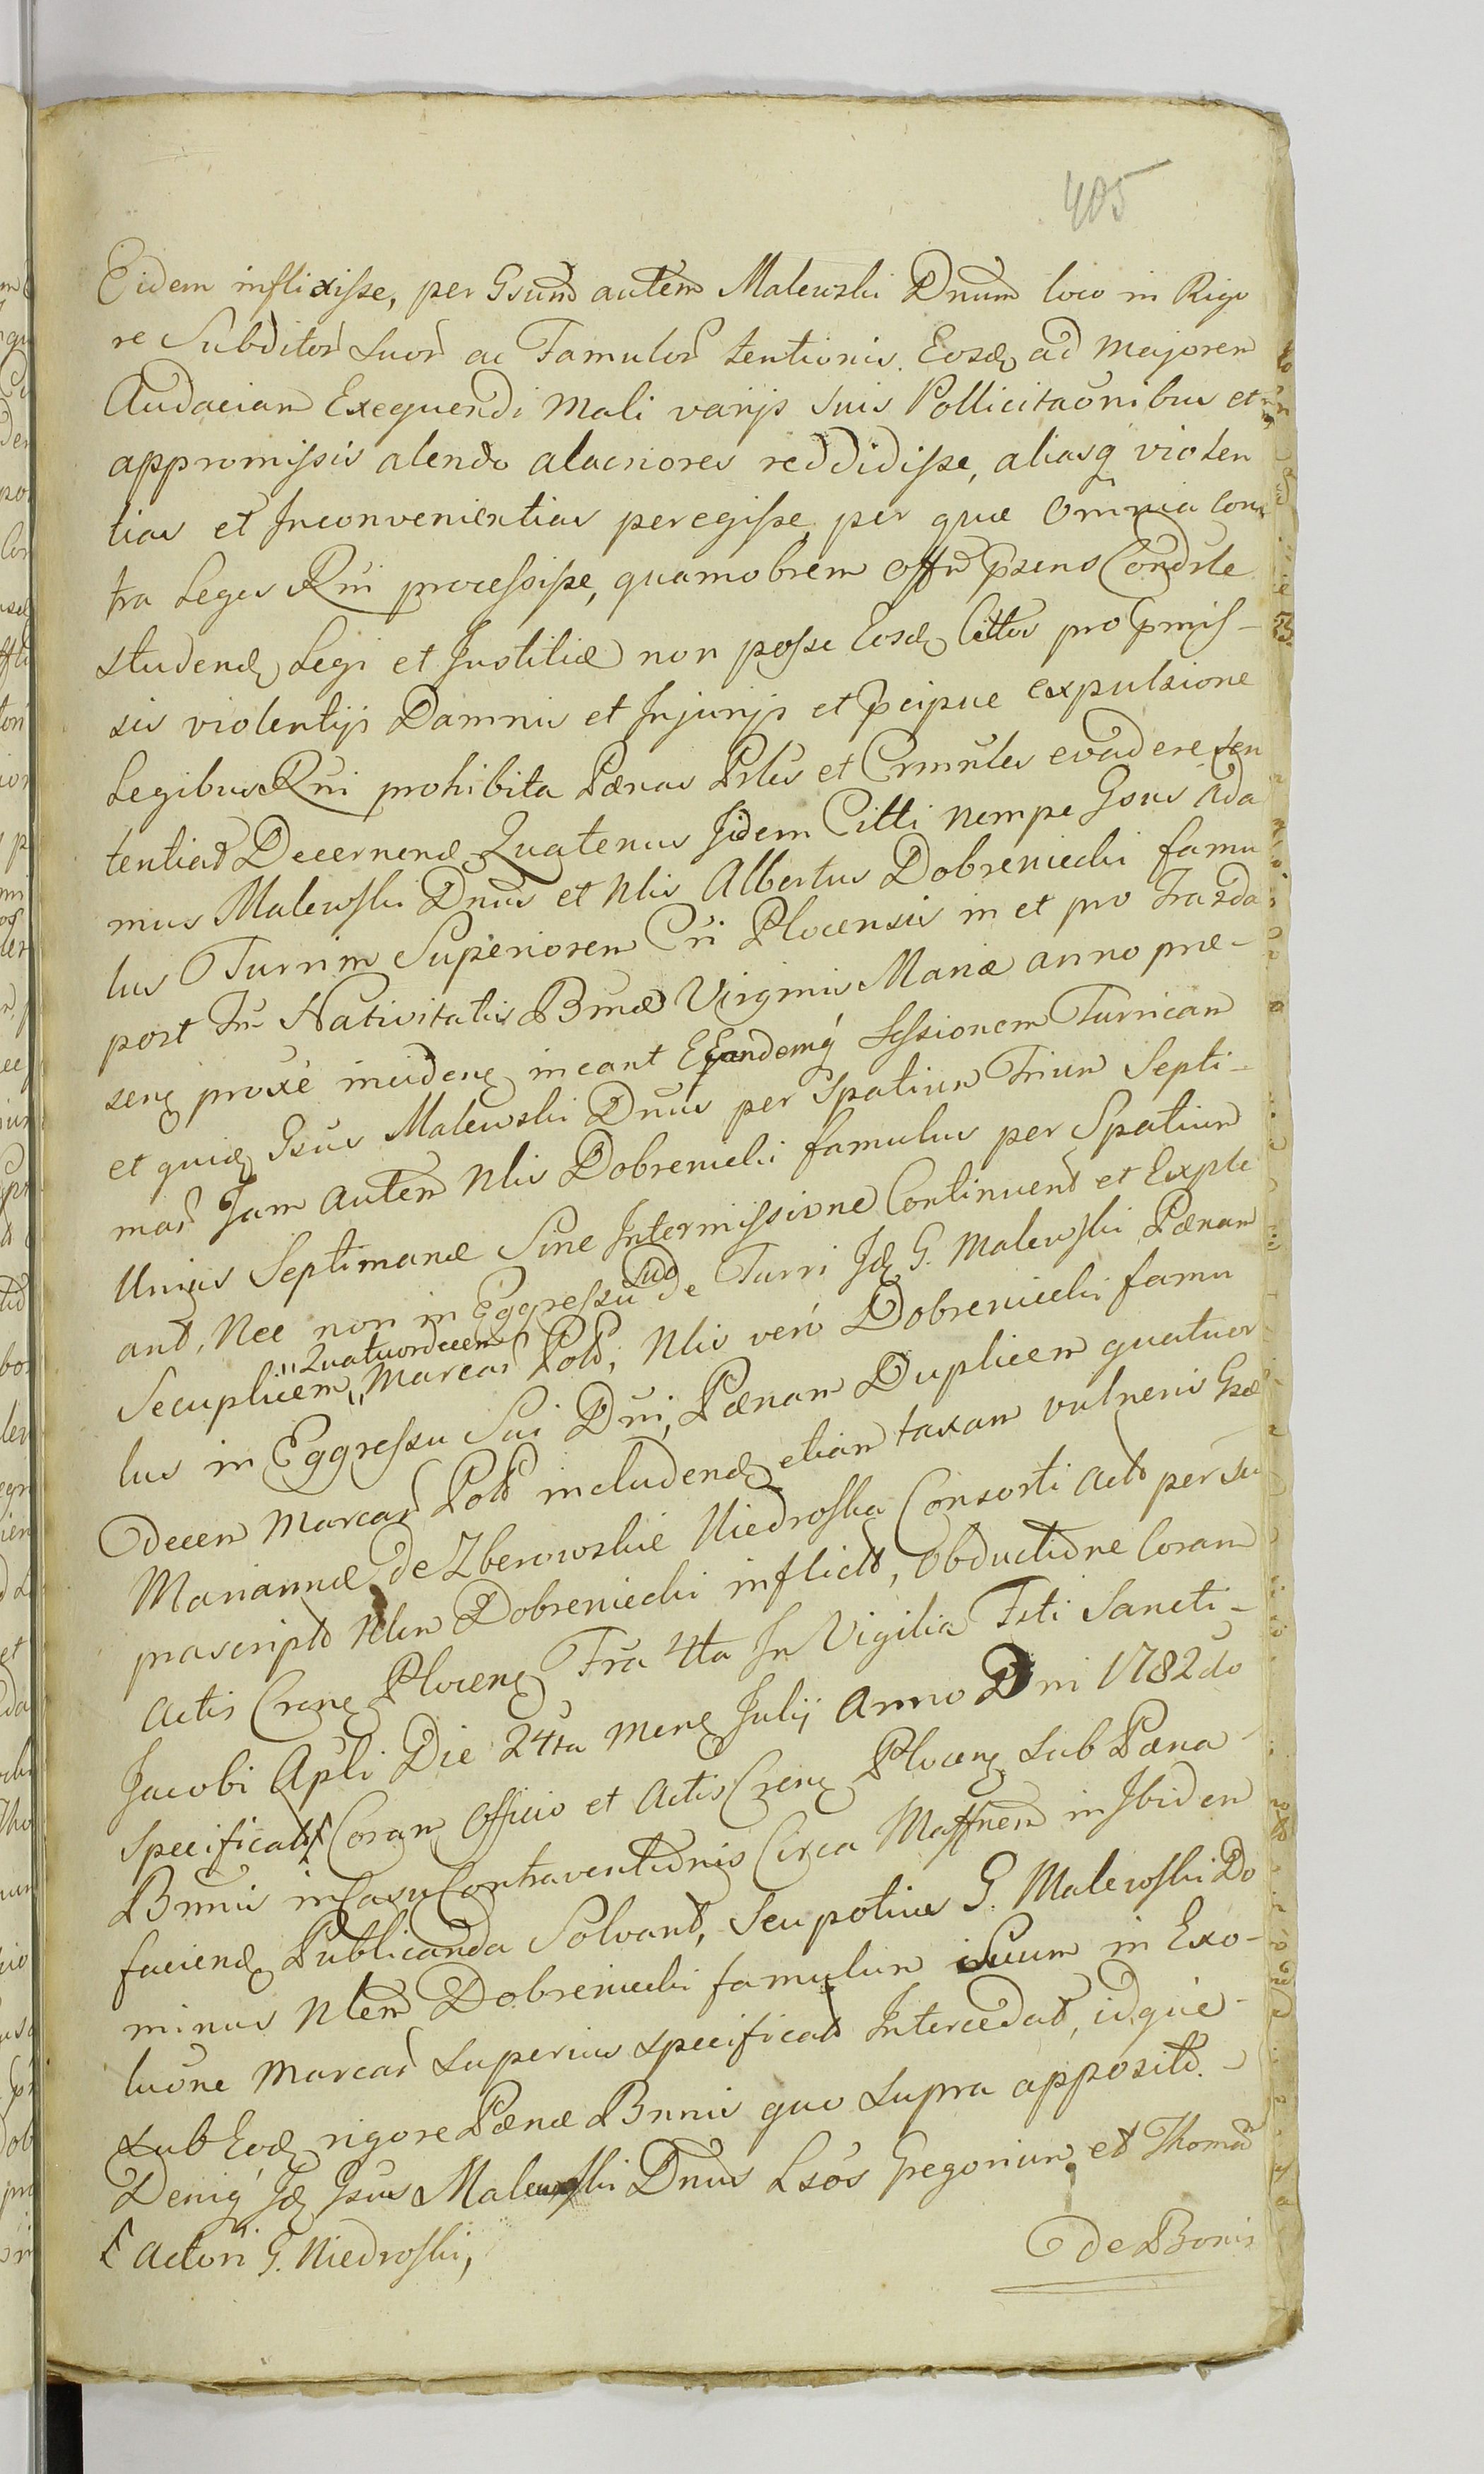 405
Eidem inflixisse, per Gsum autem Malewski Dnum loco in Rigo
re Subditor suor ac Famulor tentionis. Eosdę ad majorem
Audaciam Exequendi mali varijs suis Pollicitaonibus et
appromissis alendo alacriores reddidisse, aliasq violen
tias et Inconvenientias peregisse, per quæ omnia con
tra Leges Rni processisse, quamobrem offm psens Condsle
studendę Legi et Justitiæ non posse Eosdę Cittos pro pmis-
sis violentijs Damnis et Injurijs et pcipue expulsione
Legibus Rni prohibita Pænas Prles et Crmnles evadere sen
tentiad Decernend Quatenus Iidem Citti nempe Gsus Ada
mus Malewski Dnus et Nlis Albertus Dobreniecki famu
lus Turrim Superiorem Cri Plocensis in et pro Fra 2da
post Fm Nativitatis Bmæ Virginis Mariæ anno præ-
senę proxe incidenę ineant Eandemq Sessionem Turrican
et quidę Gsus Malewski Dnus per Spatium Trium Septi-
mar Jam autem Nlis Dobreniecki famulus per Spatium
Unius Septimanæ Sine Intermissione Continuent et Exple
ant, Nec non in Eggressu suo de Turri Idę G. Malewski Pænam
Secuplicem „Quatuordecem„ Marcar Pold, Nlis vero Dobreniecki famu
lus in Eggressu Sui Dni, Pænam Duplicem quatuor
decem Marcar Pold includendę etiam taxam vulneris Gsæ
Mariannæ de Zberowskie Niedroska Consorti actd per su
prascriptd Nlem Dobreniecki inflictd, Obductione Coram
Actis Crenę Plocenę Fra 4ta In Vigilia Fsti Sancti-
Jacobi Apli Die 24ta Menę Julij Anno Dni 1782do
Specificatd Coram Officio et Actis Crenę Plocenę sub Pæna
Bnnis in Casu Contraventionis Circa Maffnem in Ibidem
faciendę Publicanda Solvant, Seu potius G. Malewski Do
minus Nlem Dobreniecki famulum Suum in Exo-
luone Marcar superius specificatd Intercedat, idque-
sub Eodę rigore Pænæ Bnnis quo supra appositd.-
Deniq Idę Gsus Malewski Dnus Lsos Gregorium et Thomam
Actori G. Niedroski,
de Bonis